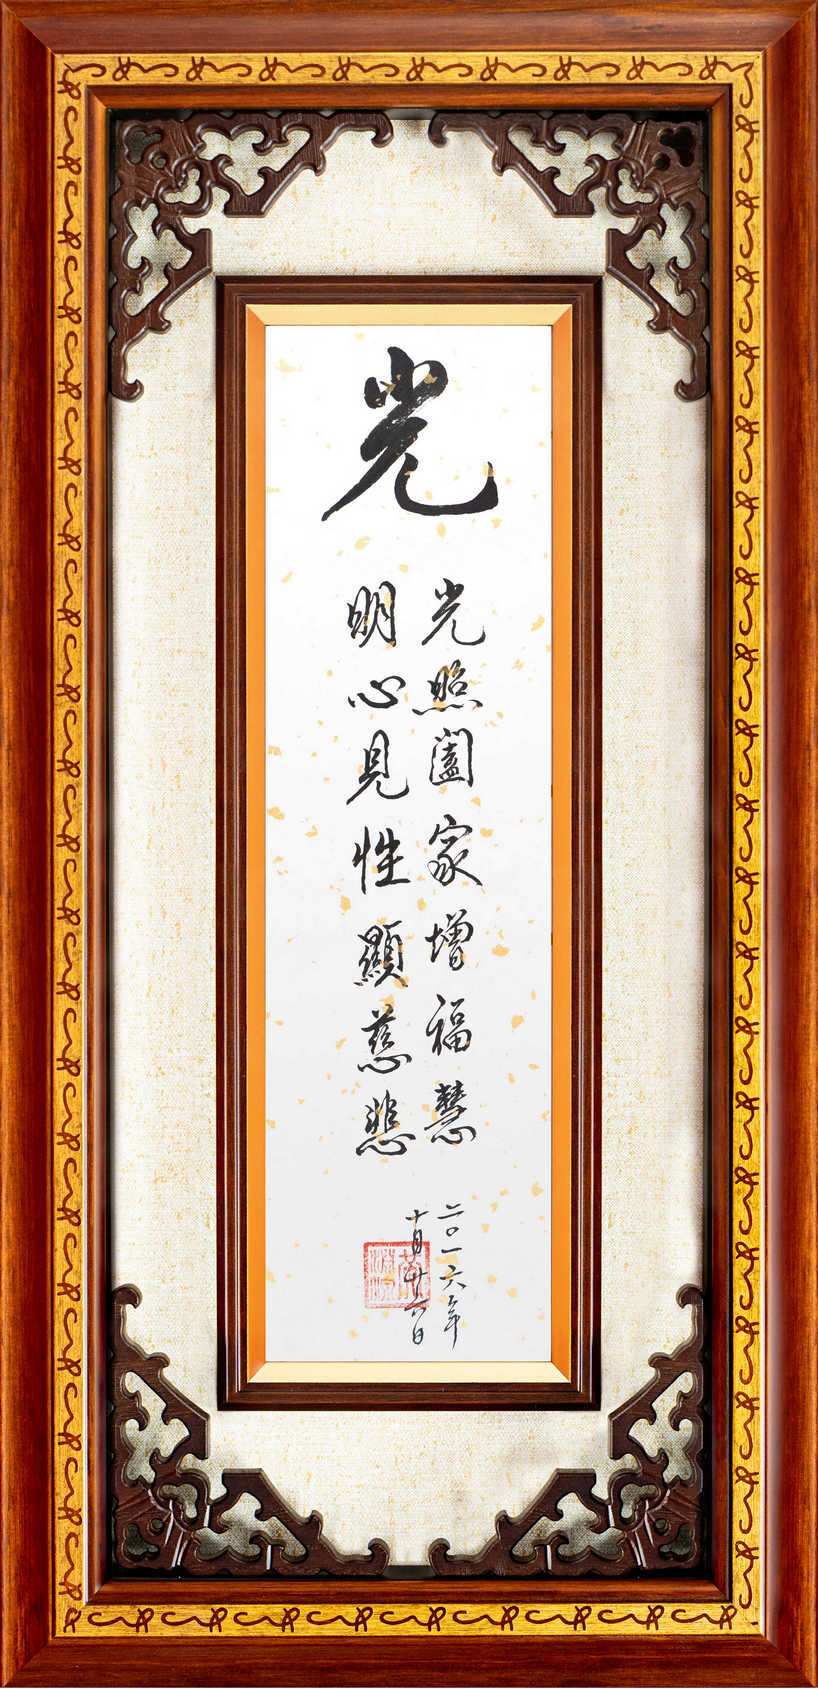 光
光照闔家增福慧
明心見性顯慈悲
二〇一六年
十月廿六日